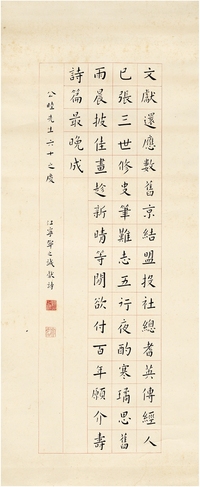 文獻還應數舊京結盟投社總耆英傳經人
已張三世修史筆難志五行夜酌寒璚思舊
雨晨披佳畫趁新晴等閒欲付百年願介壽
詩篇最晚成
公睦先生六十之慶
江寧鄧之誠詩